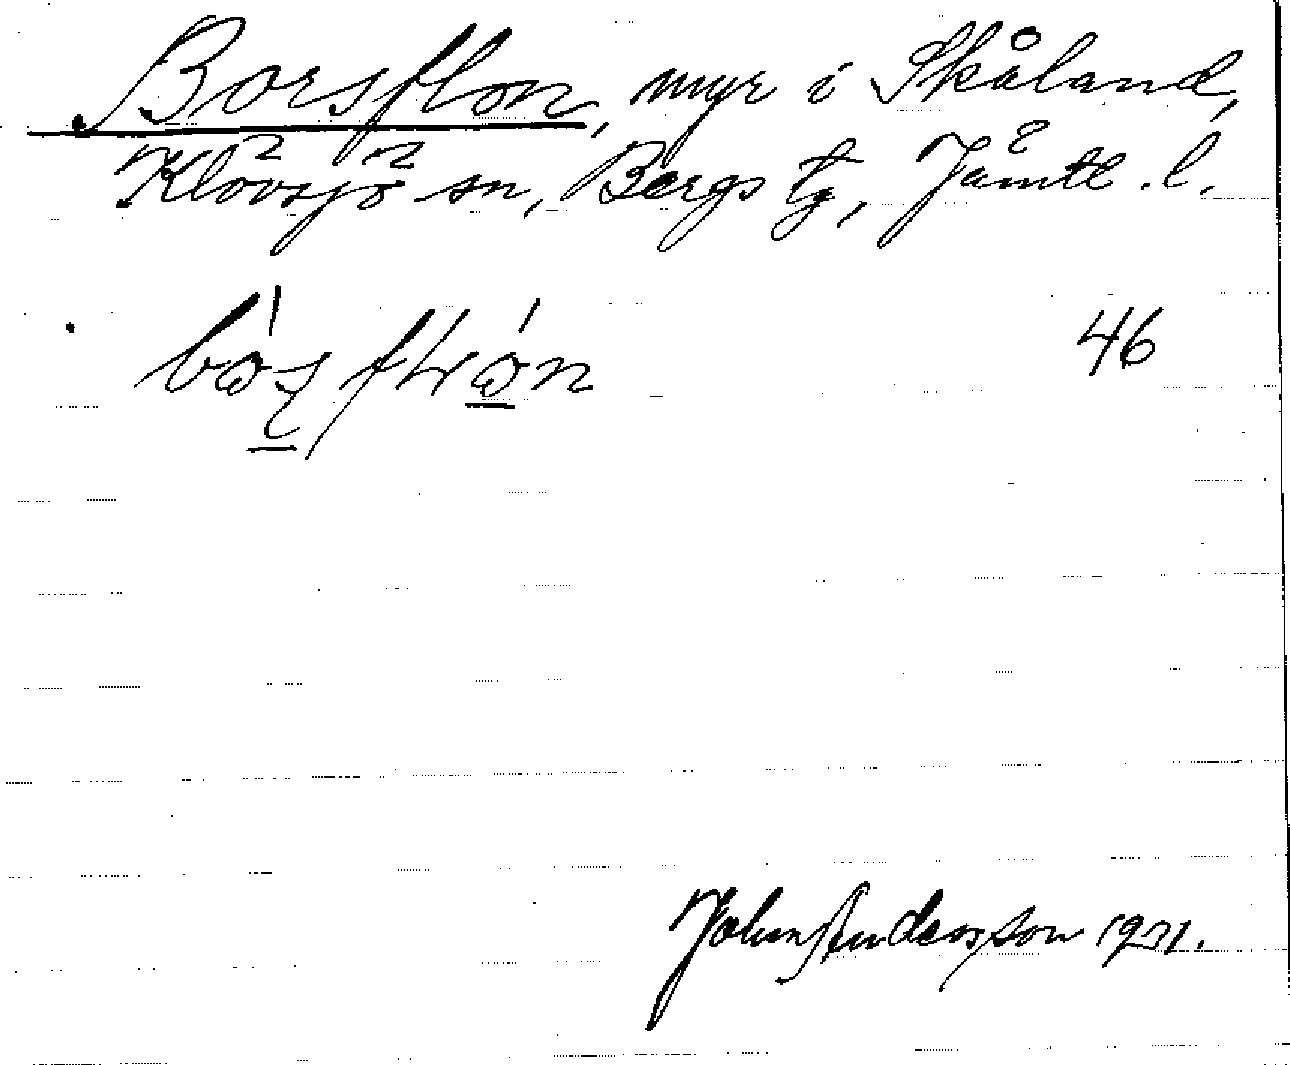 Borsflon, myr i Skåland,
Klövsjö sn, Bergs tg, Jämtl. l.
46
John Andersson 1931.